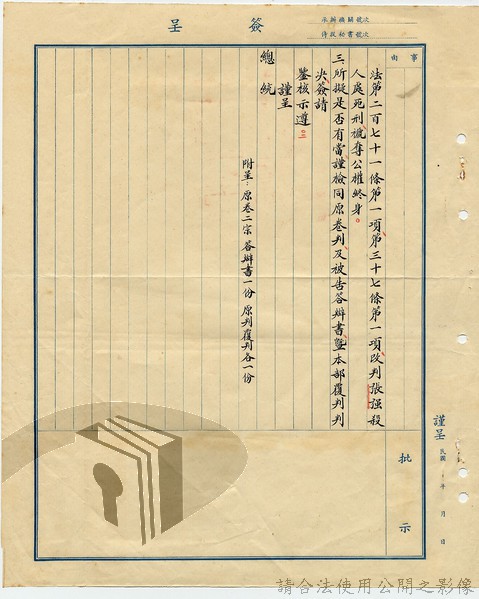 簽呈
承辦機關號次
侍從秘書號次
事由
法第二百七十一條第一項第三十七條第一項改判張強殺
人處死刑褫奪公權終身。
三、所擬是否有當謹檢同原卷判及被告答辯書暨本部覆判判
決簽請
鑒核示遵。
謹呈
總統
附呈：原卷二宗 答辯書一份 原判覆判各一份
批示
謹呈 民國 年 月 日
請合法使用公開之影像